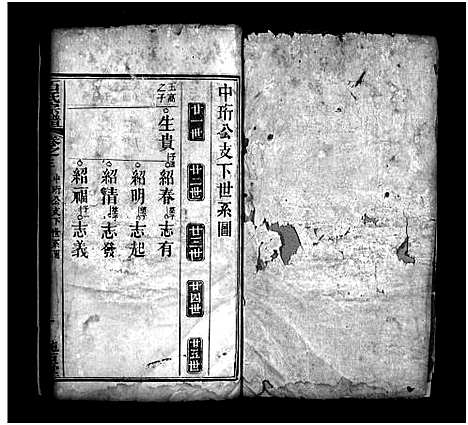 中珩公支下世系圖
廿一世 廿二世 廿三世 廿四世 廿五世
玉高之子 生貴 紹春 志有
紹明 志起
紹情 志發
紹福 志義
氏宗譜 卷之 中珩公支下世系圖